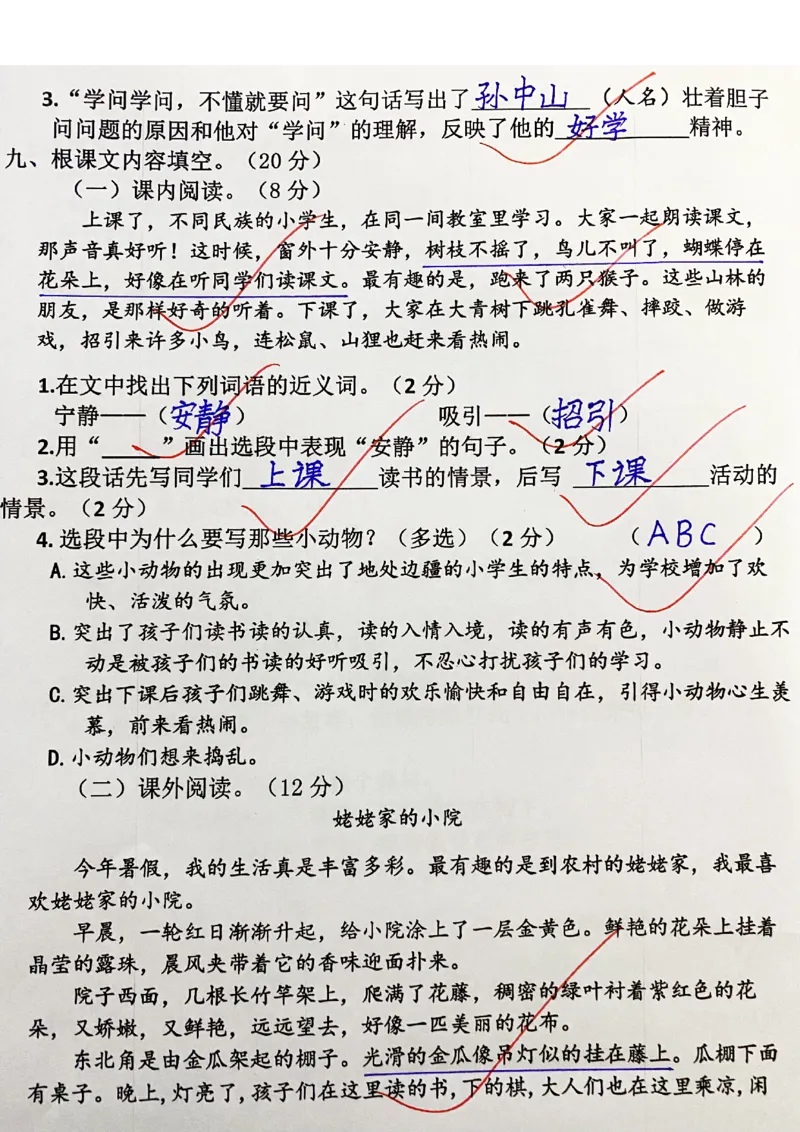 3.“学问学问，不懂就要问”这句话写出了孙中山（人名）壮着胆子
问问题的原因和他对“学问”的理解，反映了他的好学精神。
九、根课文内容填空。（20分）
（一）课内阅读。（8分）
上课了，不同民族的小学生，在同一间教室里学习。大家一起朗读课文，
那声音真好听！这时候，窗外十分安静，树枝不摇了，鸟儿不叫了，蝴蝶停在
花朵上，好像在听同学们读课文。最有趣的是，跑来了两只猴子。这些山林的
朋友，是那样好奇的听着。下课了，大家在大青树下跳孔雀舞、摔跤、做游
戏，招引来许多小鸟，连松鼠、山狸也赶来看热闹。
1.在文中找出下列词语的近义词。（2分）
宁静——（安静） 吸引——（招引）
2.用“_____”画出选段中表现“安静”的句子。（2分）
3.这段话先写同学们上课读书的情景，后写 下课活动的
情景。（2分）
4.选段中为什么要写那些小动物？（多选）（2分） （ABC）
A.这些小动物的出现更加突出了地处边疆的小学生的特点，为学校增加了欢
快、活泼的气氛。
B.突出了孩子们读书读的认真，读的入情入境，读的有声有色，小动物静止不
动是被孩子们的书读的好听吸引，不忍心打扰孩子们的学习。
C.突出下课后孩子们跳舞、游戏时的欢乐愉快和自由自在，引得小动物心生羡
慕，前来看热闹。
D.小动物们想来捣乱。
（二）课外阅读。（12分）
姥姥家的小院
今年暑假，我的生活真是丰富多彩。最有趣的是到农村的姥姥家，我最喜
欢姥姥家的小院。
早晨，一轮红日渐渐升起，给小院涂上了一层金黄色。鲜艳的花朵上挂着
晶莹的露珠，晨风夹带着它的香味迎面扑来。
院子西面，几根长竹竿架上，爬满了花藤，稠密的绿叶衬着紫红色的花
朵，又娇嫩，又鲜艳，远远望去，好像一匹美丽的花布。
东北角是由金瓜架起的棚子。光滑的金瓜像吊灯似的挂在藤上。瓜棚下面
有桌子。晚上，灯亮了，孩子们在这里读的书，下的棋，大人们也在这里乘凉，闲